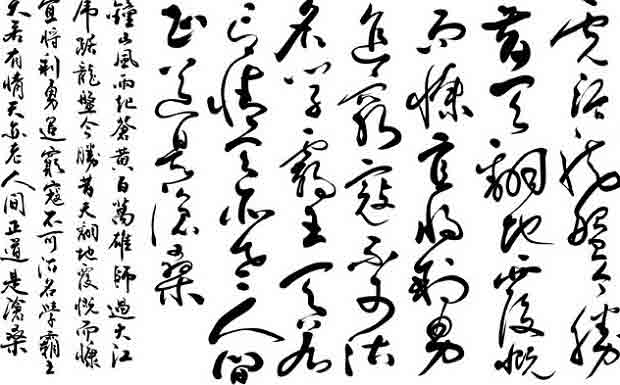 虎踞龙盘今勝
昔天翻地覆慨
而慷宜将剩勇
追窮寇不可沽
名学霸王天若
有情天亦老人間
正道是滄桑
鐘山風雨起蒼黄百萬雄師過大江
虎踞龍盤今勝昔天翻地覆慨而慷
宜將剩勇追窮寇不可沽名學霸王
天若有情天亦老人間正道是滄桑